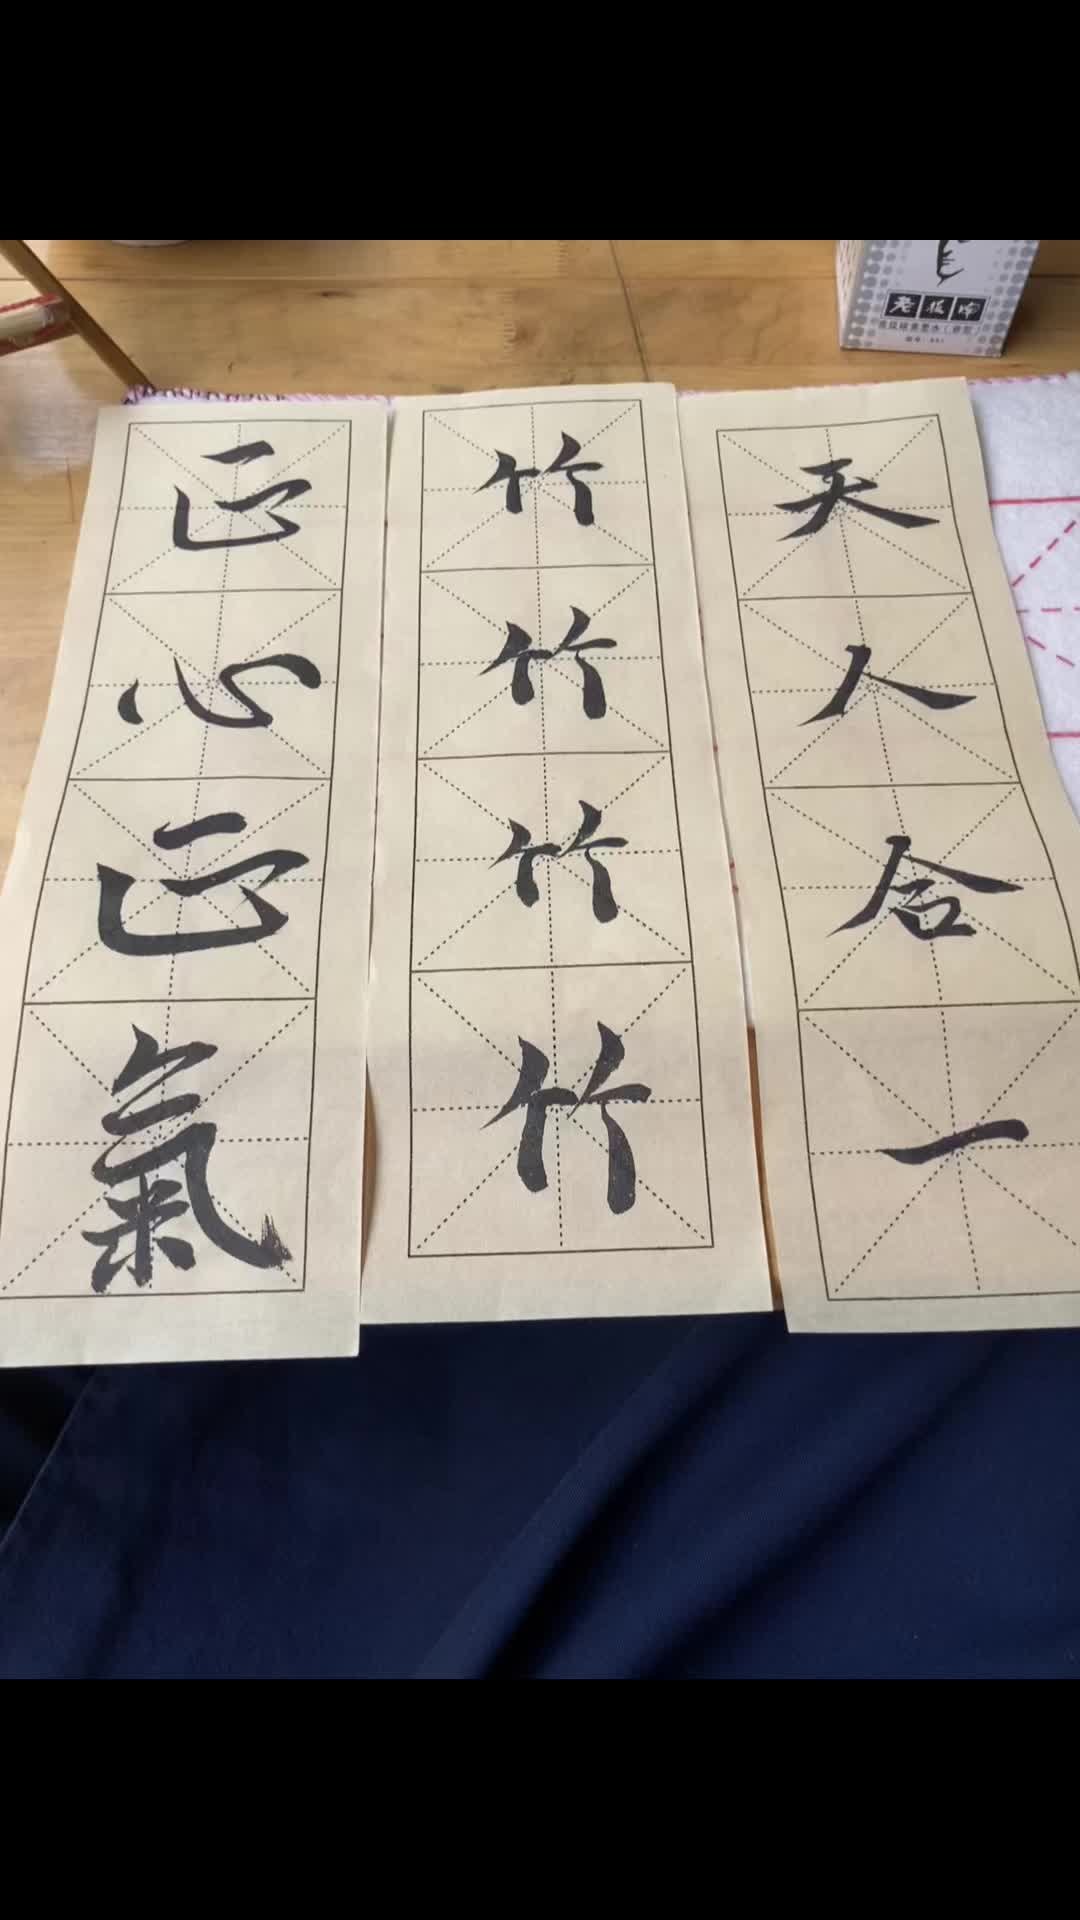 天人合一
竹竹竹竹
正心正氣